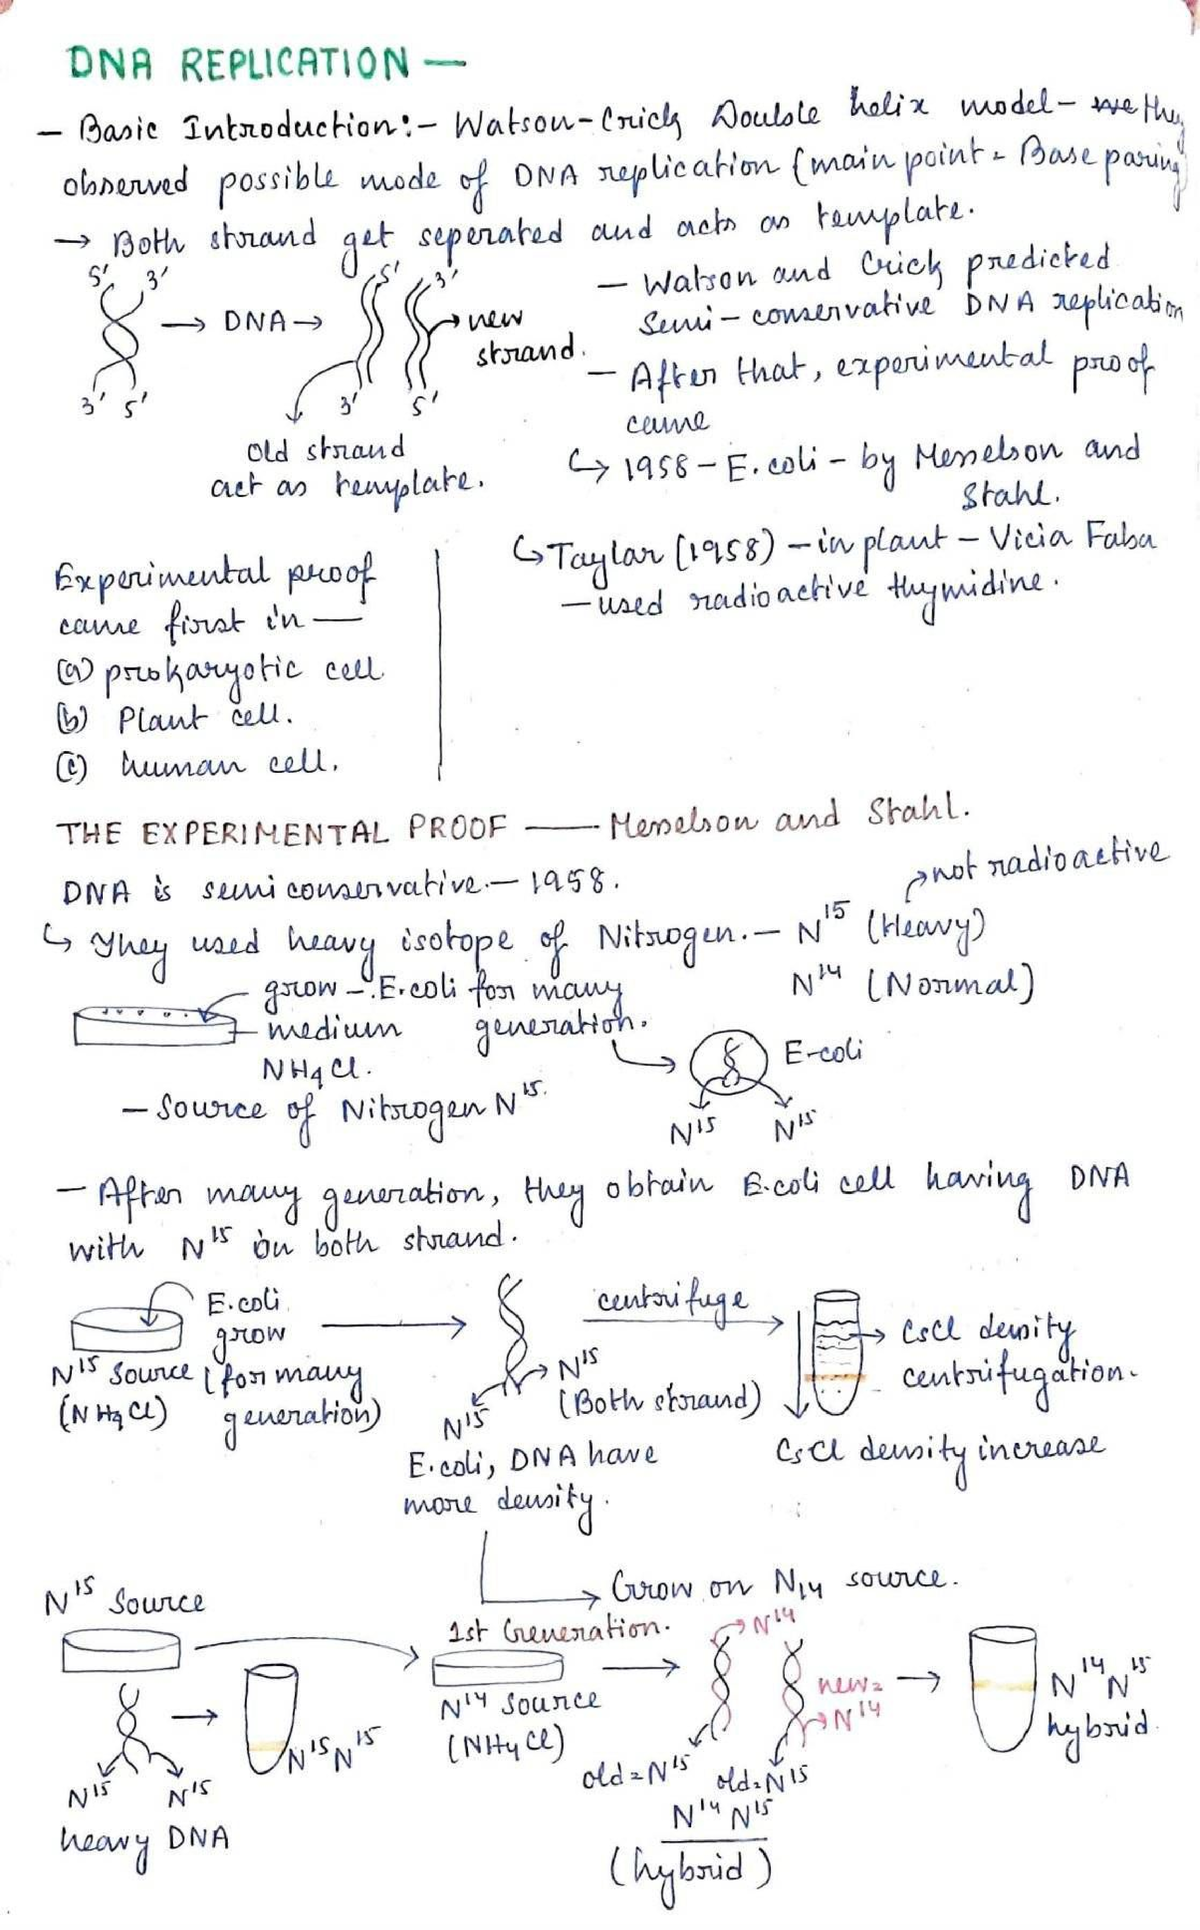 DNA REPLICATION —
– Basic Introduction:- Watson-Crick Double helix model- they
observed possible mode of DNA replication (main point = Base paring)
→ Both strand get seperated and acts as template.
5' 3'
→ DNA →
3' 5'
5' 3'
→ new
strand.
3' 5'
Old strand
act as template.
– Watson and Crick predicted
Semi-conservative DNA replication
– After that, experimental proof
came
↳ 1958 – E.coli – by Messelson and
Stahl.
↳ Taylar (1958) – in plant – Vicia Faba
– used radioactive thymidine.
Experimental proof
came first in —
(a) prokaryotic cell.
(b) Plant cell.
(c) human cell.
THE EXPERIMENTAL PROOF —— Messelson and Stahl.
DNA is semiconservative.– 1958.
→ not radioactive
↳ They used heavy isotope of Nitrogen.– N¹⁵ (Heavy)
N¹⁴ (Normal)
grow – E.coli for many
generation.
medium
NH₄Cl.
– Source of Nitrogen N¹⁵.
E-coli
N¹⁵ N¹⁵
– After many generation, they obtain E.coli cell having DNA
with N¹⁵ on both strand.
E.coli
grow
(for many
generation)
N¹⁵ Source
(NH₄Cl)
N¹⁵
N¹⁵
(Both strand)
E.coli, DNA have
more density.
centrifuge
→ CsCl density
centrifugation.
CsCl density increase
→ Grow on N₁₄ source.
N¹⁵ Source
N¹⁵ N¹⁵
heavy DNA
N¹⁵N¹⁵
1st Generation.
N¹⁴ Source
(NH₄Cl)
N¹⁴
old = N¹⁵
new =
N¹⁴
old = N¹⁵
N¹⁴ N¹⁵
(hybrid)
N¹⁴N¹⁵
hybrid.